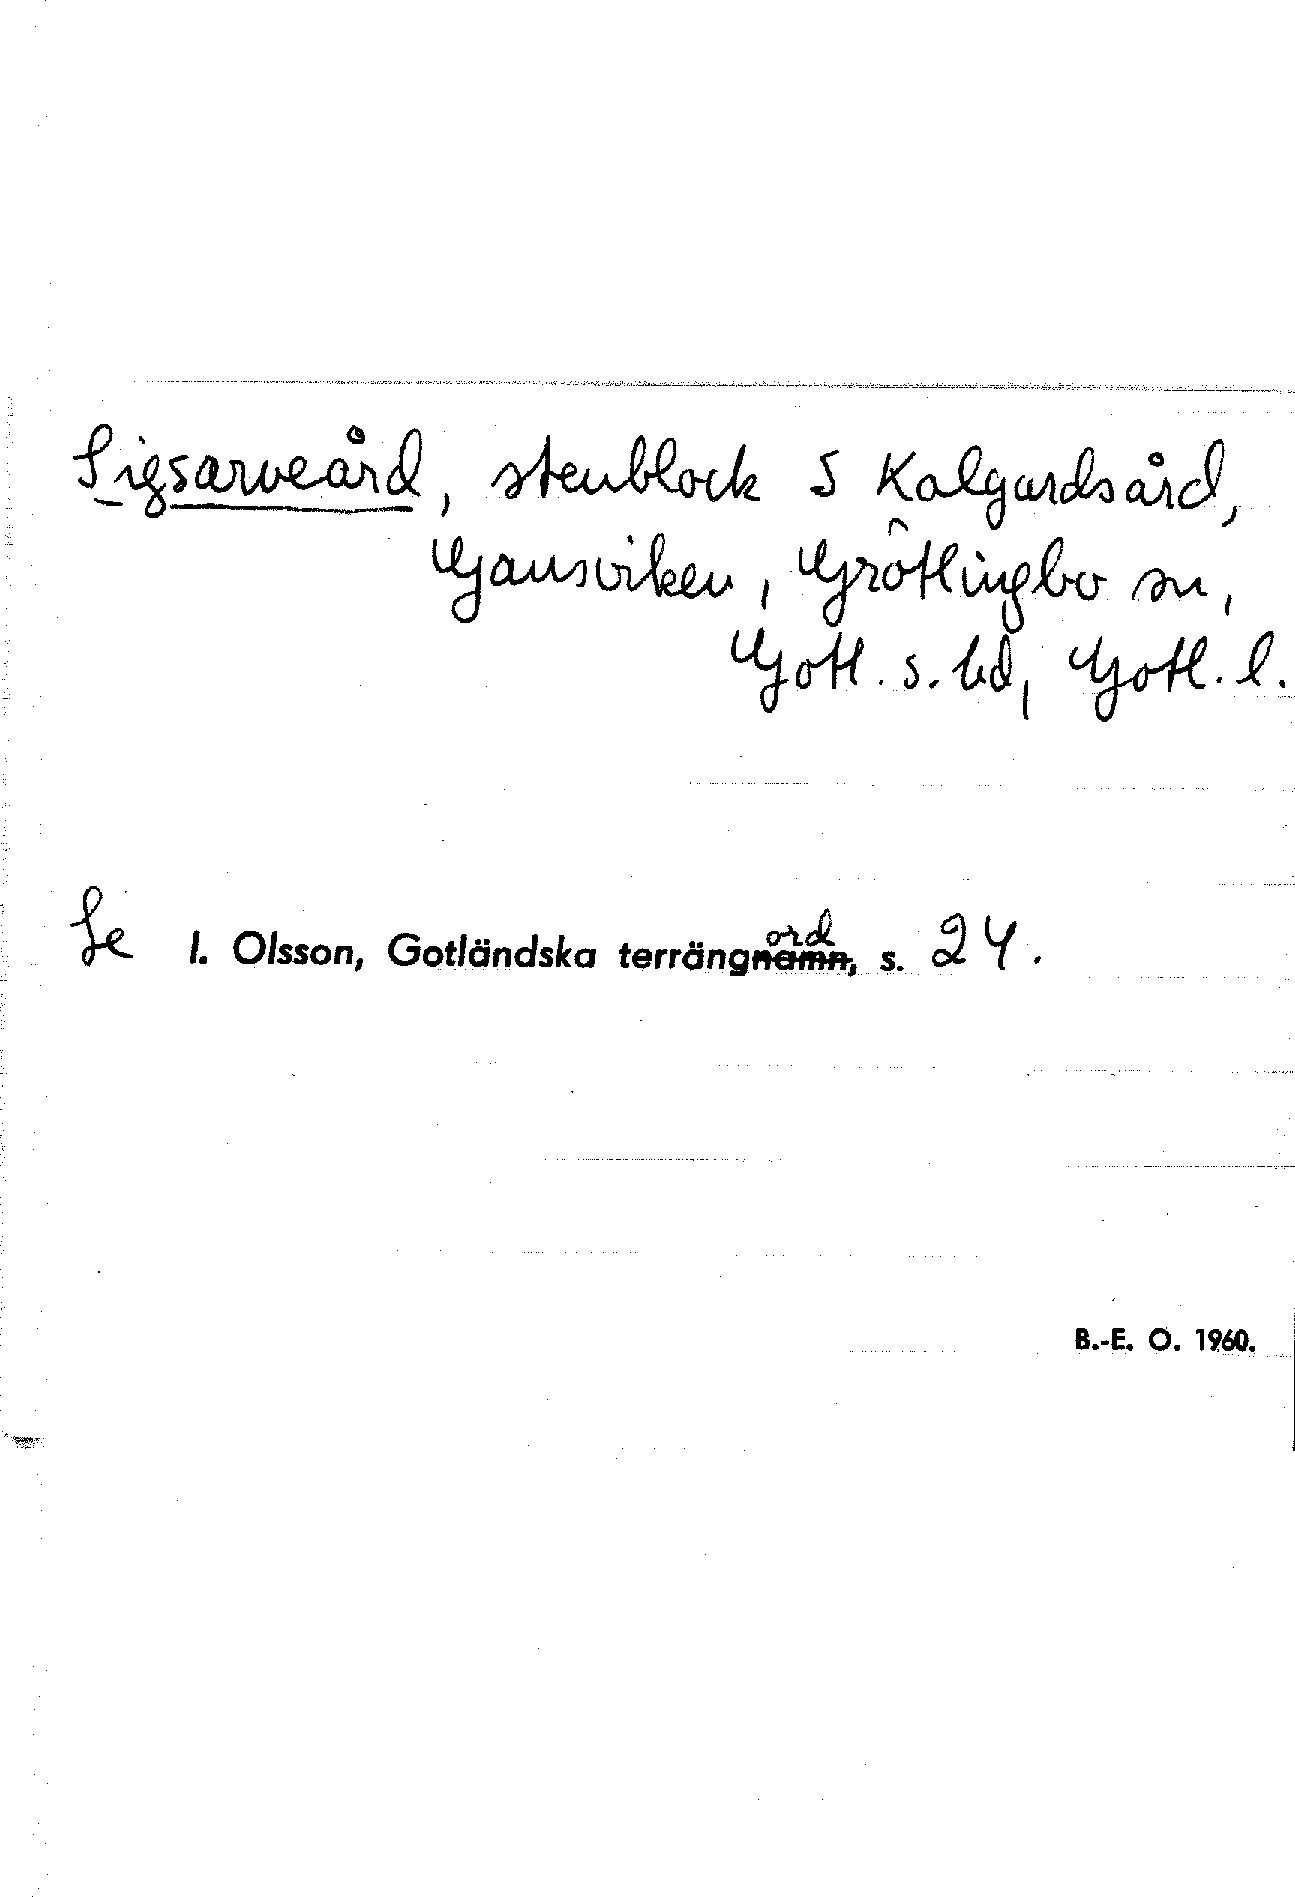 Sigsarveård, stenblock S Kalgardsård,
Gansviken, Grötlingbo sn,
Gotl. s. hd, Gotl. l.
Se I. Olsson, Gotländska terrängord, s. 24.
B.-E. O. 1960.